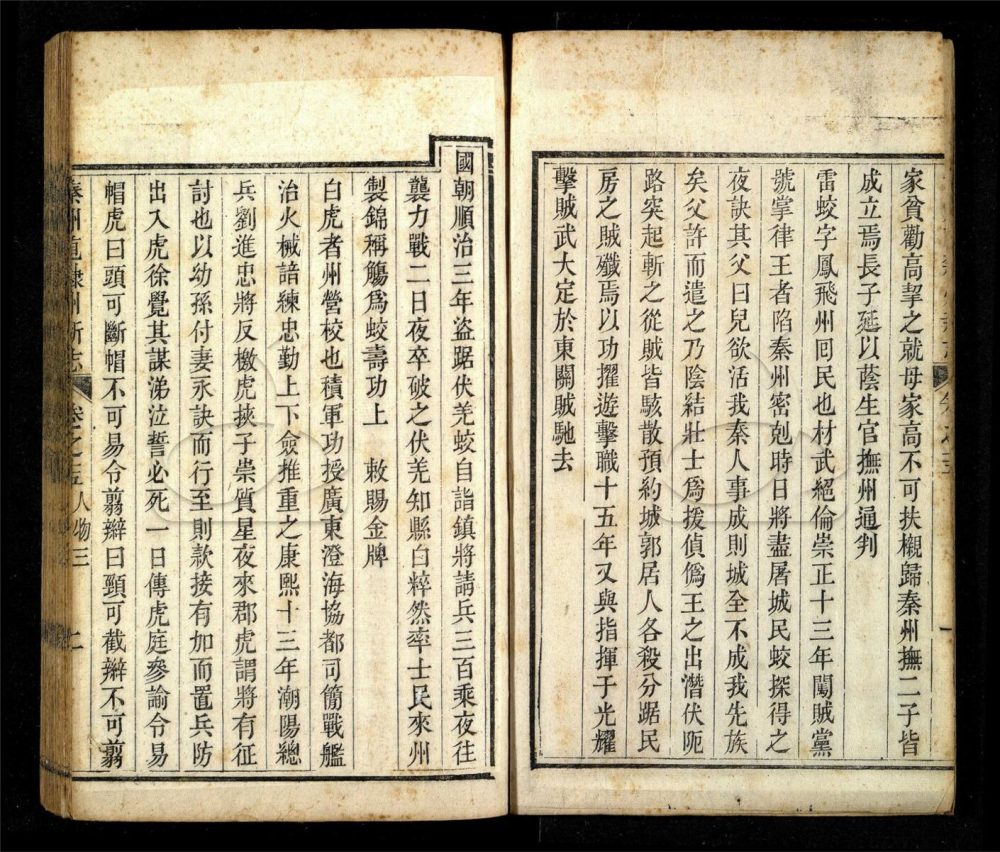 家貧勸高挈之就母家高不可扶櫬歸秦州撫二子皆
成立焉長子延以蔭生官撫州通判
雷蛟字鳳飛州囘民也材武絕倫崇正十三年闖賊黨
號掌律王者陷秦州密剋時日將盡屠城民蛟探得之
夜訣其父曰兒欲活我秦人事成則城全不成我先族
矣父許而遣之乃陰結壯士爲援偵僞王之出潛伏阨
路突起斬之從賊皆駭散預約城郭居人各殺分踞民
房之賊殲焉以功擢遊擊職十五年又與指揮于光耀
擊賊武大定於東關賊馳去
國朝順治三年盜踞伏羌蛟自詣鎮將請兵三百乘夜往
襲力戰二日夜卒破之伏羌知縣白粹然率士民來州
製錦稱觴爲蛟壽功上 敕賜金牌
白虎者州營校也積軍功授廣東澄海協都司簡戰艦
治火械諳練忠勤上下僉推重之康熙十三年潮陽總
兵劉進忠將反檄虎挾子崇質星夜來郡虎謂將有征
討也以幼孫付妻永訣而行至則款接有加而置兵防
出入虎徐覺其謀涕泣誓必死一日傳虎庭參諭令易
帽虎曰頭可斷帽不可易令翦辮曰頸可截辮不可翦
秦州直隸州新志 卷之 人物三 二